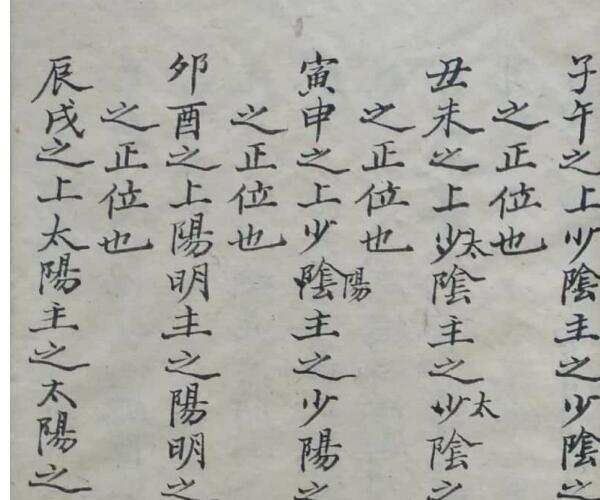 子午之上少陰主之少陰之
之正位也
丑未之上少太陰主之少太陰之
之正位也
寅申之上少陰陽主之少陽之
之正位也
卯酉之上陽明主之陽明之
之正位也
辰戌之上太陽主之太陽之